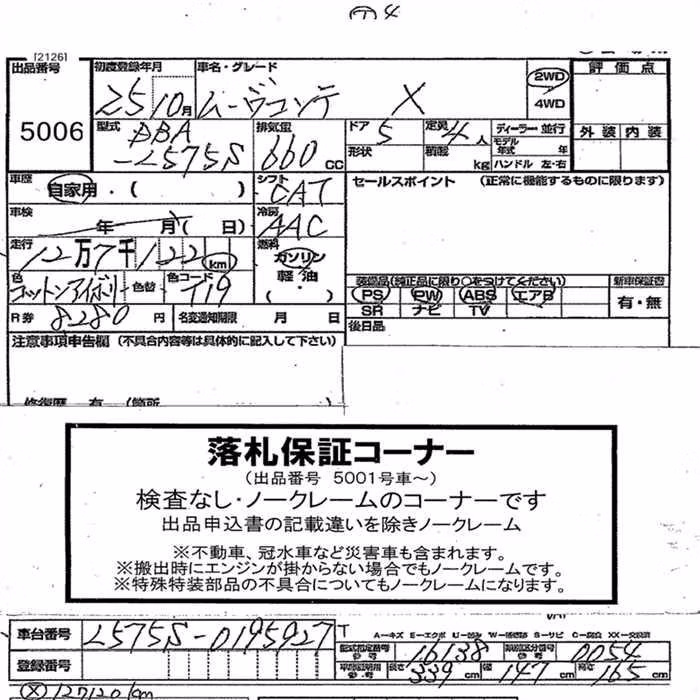 ④
[2126]
出品番号 初度登録年月 車名・グレード 2WD 4WD 評価点
5006 25 10月 ムーヴコンテ X
型式 DBA-L575S 排気量 660 CC ドア 5 定員 4人 ディーラー・並行 外装 内装
形状 積載 kg モデル年式 年 ハンドル 左・右
車歴 自家用・( ) シフト CAT セールスポイント (正常に機能するものに限ります)
車検 年 月( 日) 冷房 AAC
走行 12万7千122 km 燃料 ガソリン 軽・油 ・( )
色 コットンアイボリー 色替 色コード T19 装備品(純正品に限り○をつけてください) 新車保証書
PS PW ABS エアB 有・無
SR ナビ TV
R券 8280 円 名変通知期限 月 日 後日品
注意事項申告欄 (不具合内容等は具体的に記入して下さい)
修復歴 有 (箇所
落札保証コーナー
(出品番号 5001号車~)
検査なし・ノークレームのコーナーです
出品申込書の記載違いを除きノークレーム
※不動車、冠水車など災害車も含まれます。
※搬出時にエンジンが掛からない場合でもノークレームです。
※特殊特装部品の不具合についてもノークレームになります。
車台番号 L575S-0195927 T
A-キズ E-エクボ U-凹み W-補修跡 S-サビ C-腐食 XX-交換済
型式指定番号 16138 類別区分番号 0054
登録番号 長さ 339 cm 幅 147 cm 高さ 165 cm
Ⓧ127120km